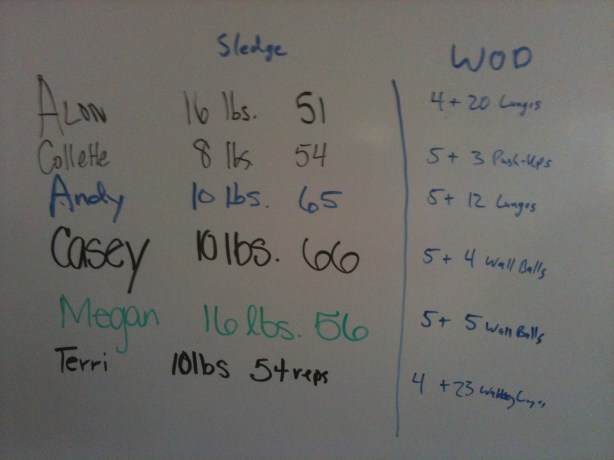 Sledge WOD
Alon 16 lbs. 51 4 + 20 Lunges
Collette 8 lbs 54 5 + 3 Push-Ups
Andy 10 lbs. 65 5 + 12 Lunges
Casey 10 lbs. 66 5 + 4 Wall Balls
Megan 16 lbs. 56 5 + 5 Wall Balls
Terri 10 lbs 54 reps 4 + 23 Walking Lunges